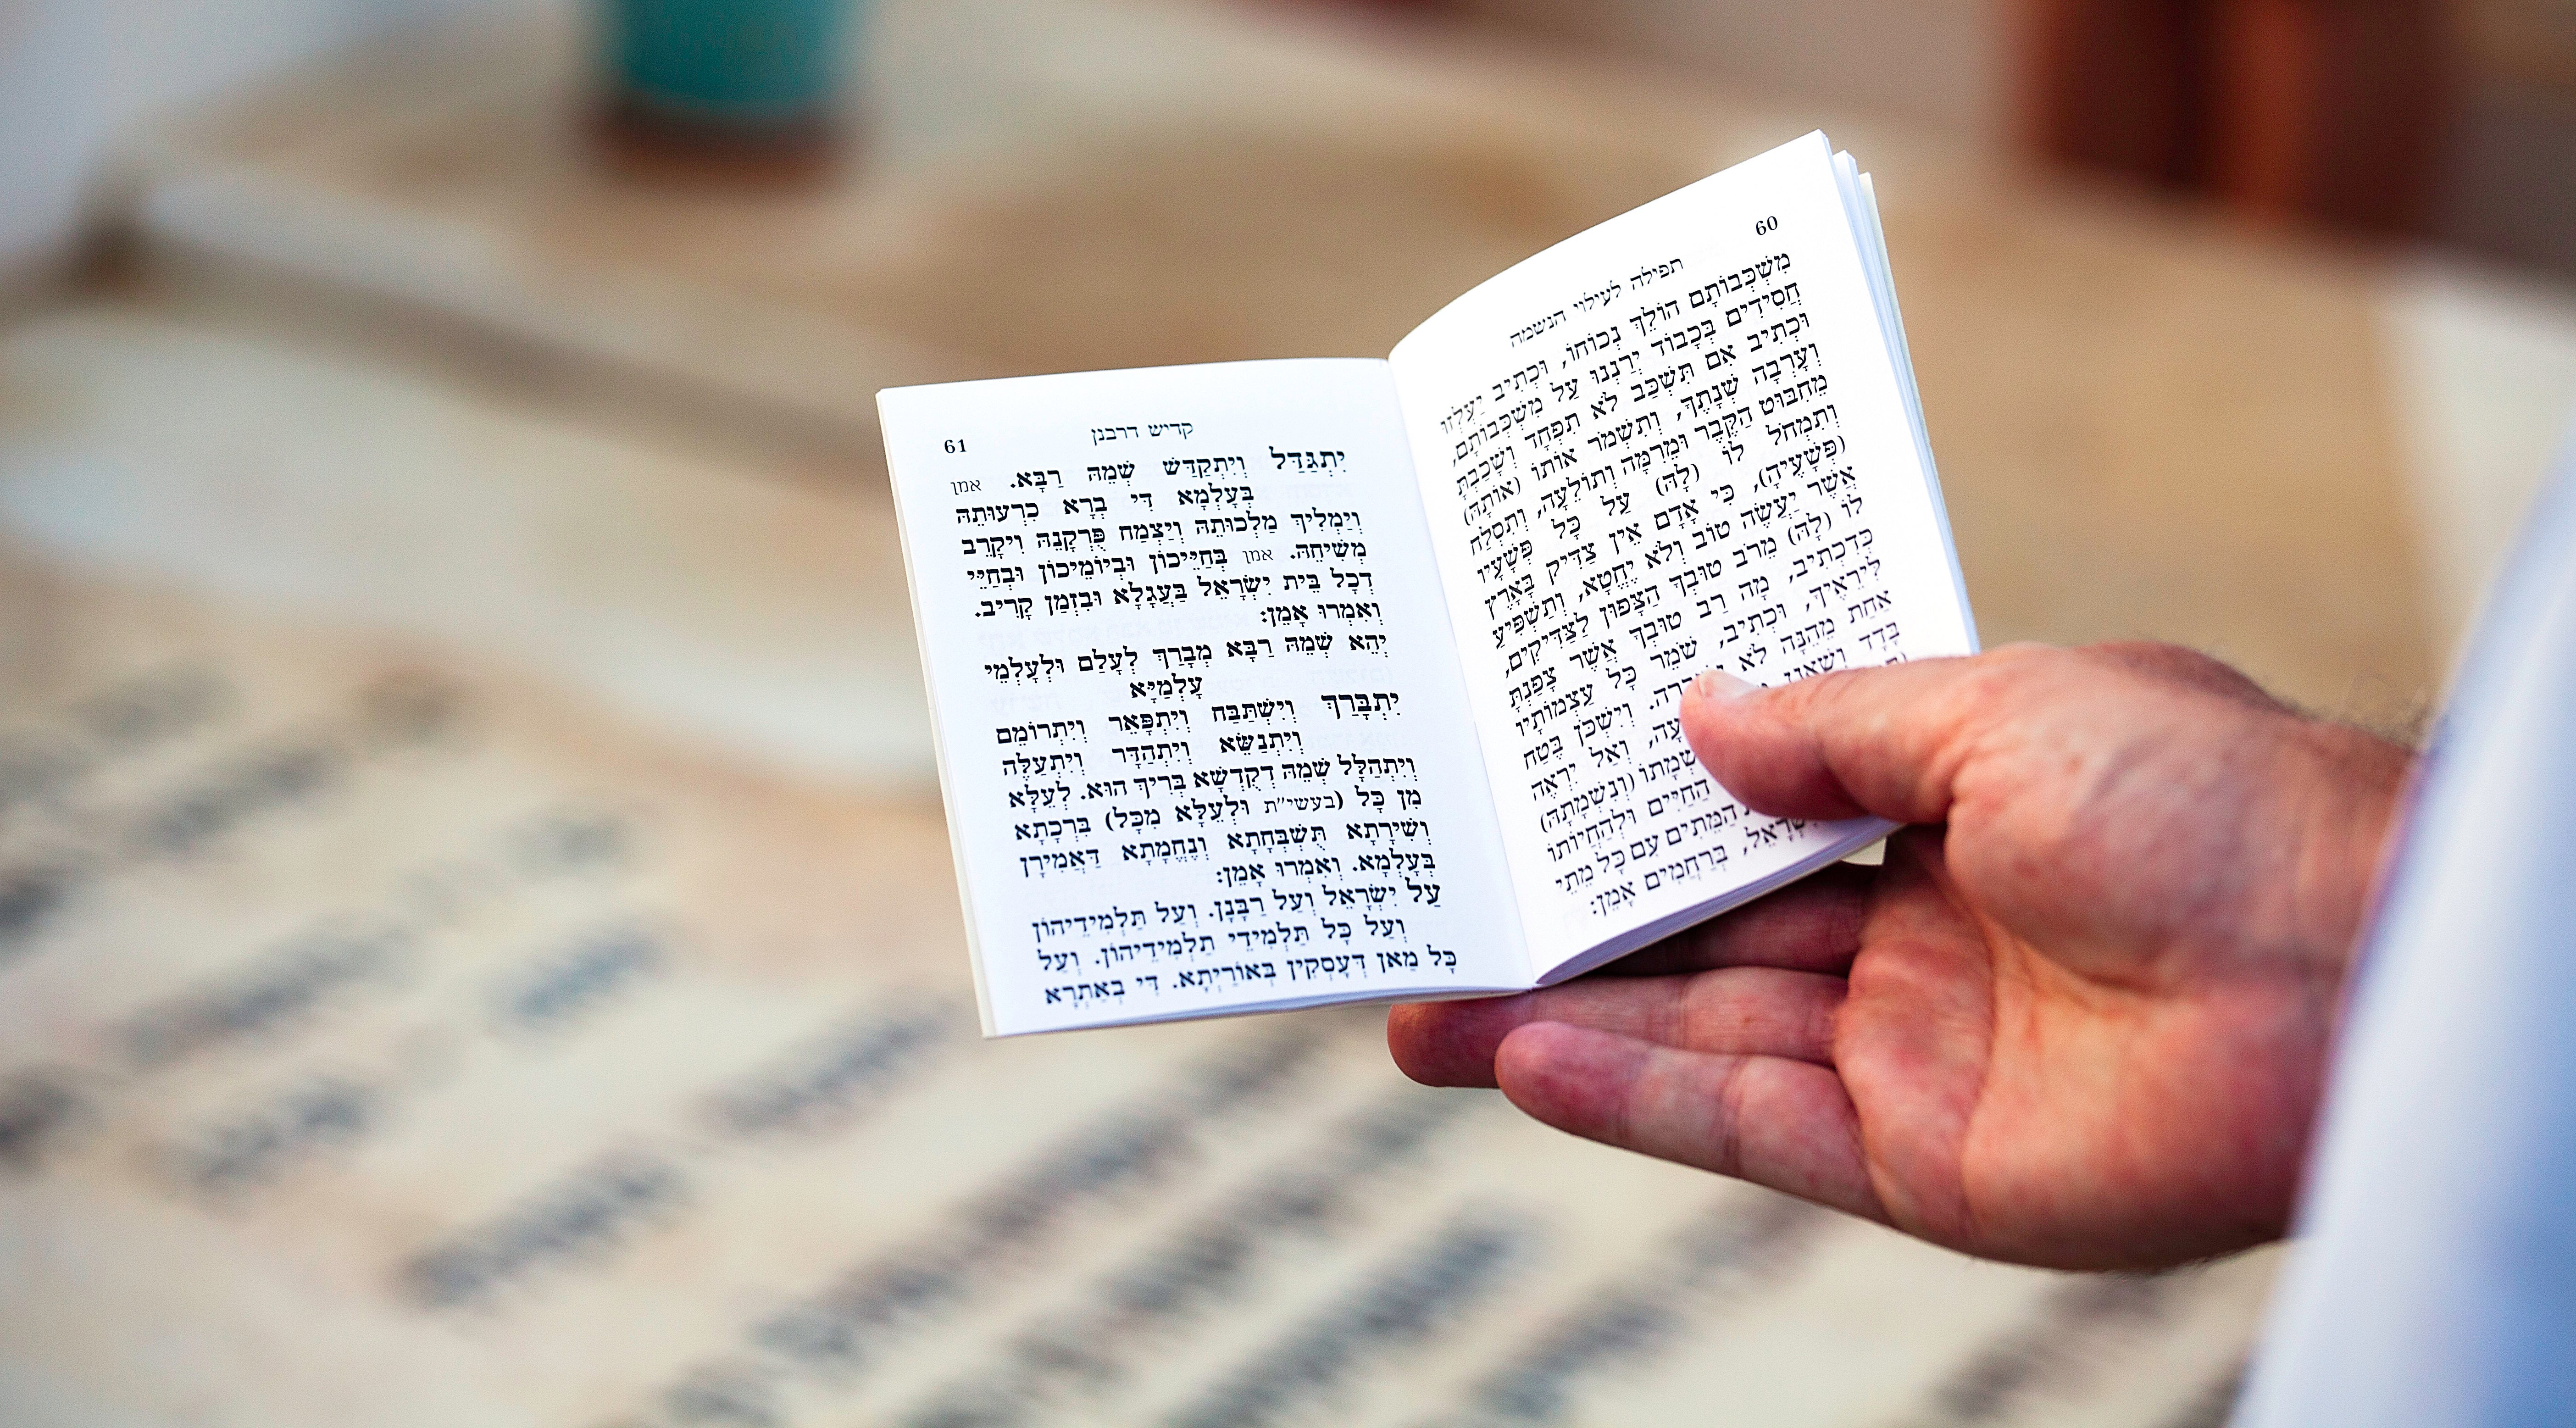 60
תפילה לעילוי הנשמה
מִשְׁכְּבוֹתָם הוֹלֵךְ נְכוֹחוֹ, וּכְתִיב יַעְלְזוּ
חֲסִידִים בְּכָבוֹד יְרַנְּנוּ עַל מִשְׁכְּבוֹתָם,
וּכְתִיב אִם תִּשְׁכַּב לֹא תִפְחָד וְשָׁכַבְתָּ
וְעָרְבָה שְׁנָתֶךָ, וְתִשְׁמֹר אוֹתוֹ (אוֹתָהּ)
מֵחִבּוּט הַקֶּבֶר וּמֵרִמָּה וְתוֹלֵעָה, וְתִסְלַח
וְתִמְחֹל לוֹ (לָהּ) עַל כָּל פְּשָׁעָיו
(פְּשָׁעֶיהָ), כִּי אָדָם אֵין צַדִּיק בָּאָרֶץ
אֲשֶׁר יַעֲשֶׂה טּוֹב וְלֹא יֶחֱטָא, וְתַשְׁפִּיעַ
לוֹ (לָהּ) מֵרֹב טוּבְךָ הַצָּפוּן לַצַּדִּיקִים,
כְּדִכְתִיב, מָה רַב טוּבְךָ אֲשֶׁר צָפַנְתָּ
לִּירֵאֶיךָ, וּכְתִיב, שֹׁמֵר כָּל עַצְמוֹתָיו
אַחַת מֵהֵנָּה לֹא נִשְׁבָּרָה. וְיִשְׁכֹּן בֶּטַח
בָּדָד וְשַׁאֲנָן וְאַל יִרְאֶה
הַחַיִּים וּלְהַחֲיוֹתוֹ
הַמֵּתִים עִם כָּל מֵתֵי
יִשְׂרָאֵל, בְּרַחֲמִים אָמֵן:
61
קדיש דרבנן
יִתְגַּדַּל וְיִתְקַדַּשׁ שְׁמֵהּ רַבָּא. אמן
בְּעָלְמָא דִּי בְרָא כִרְעוּתֵהּ
וְיַמְלִיךְ מַלְכוּתֵהּ וְיַצְמַח פֻּרְקָנֵהּ וִיקָרֵב
מְשִׁיחֵהּ. אמן בְּחַיֵּיכוֹן וּבְיוֹמֵיכוֹן וּבְחַיֵּי
דְכָל בֵּית יִשְׂרָאֵל בַּעֲגָלָא וּבִזְמַן קָרִיב.
וְאִמְרוּ אָמֵן:
יְהֵא שְׁמֵהּ רַבָּא מְבָרַךְ לְעָלַם וּלְעָלְמֵי
עָלְמַיָּא
יִתְבָּרַךְ וְיִשְׁתַּבַּח וְיִתְפָּאֵר וְיִתְרוֹמֵם
וְיִתְנַשֵּׂא וְיִתְהַדָּר וְיִתְעַלֶּה
וְיִתְהַלָּל שְׁמֵהּ דְקֻדְשָׁא בְּרִיךְ הוּא. לְעֵלָּא
מִן כָּל (בעשי״ת וּלְעֵלָּא מִכָּל) בִּרְכָתָא
וְשִׁירָתָא תֻּשְׁבְּחָתָא וְנֶחֱמָתָא דַּאֲמִירָן
בְּעָלְמָא. וְאִמְרוּ אָמֵן:
עַל יִשְׂרָאֵל וְעַל רַבָּנָן. וְעַל תַּלְמִידֵיהוֹן
וְעַל כָּל תַּלְמִידֵי תַלְמִידֵיהוֹן. וְעַל
כָּל מַאן דְּעָסְקִין בְּאוֹרַיְתָא. דִּי בְאַתְרָא